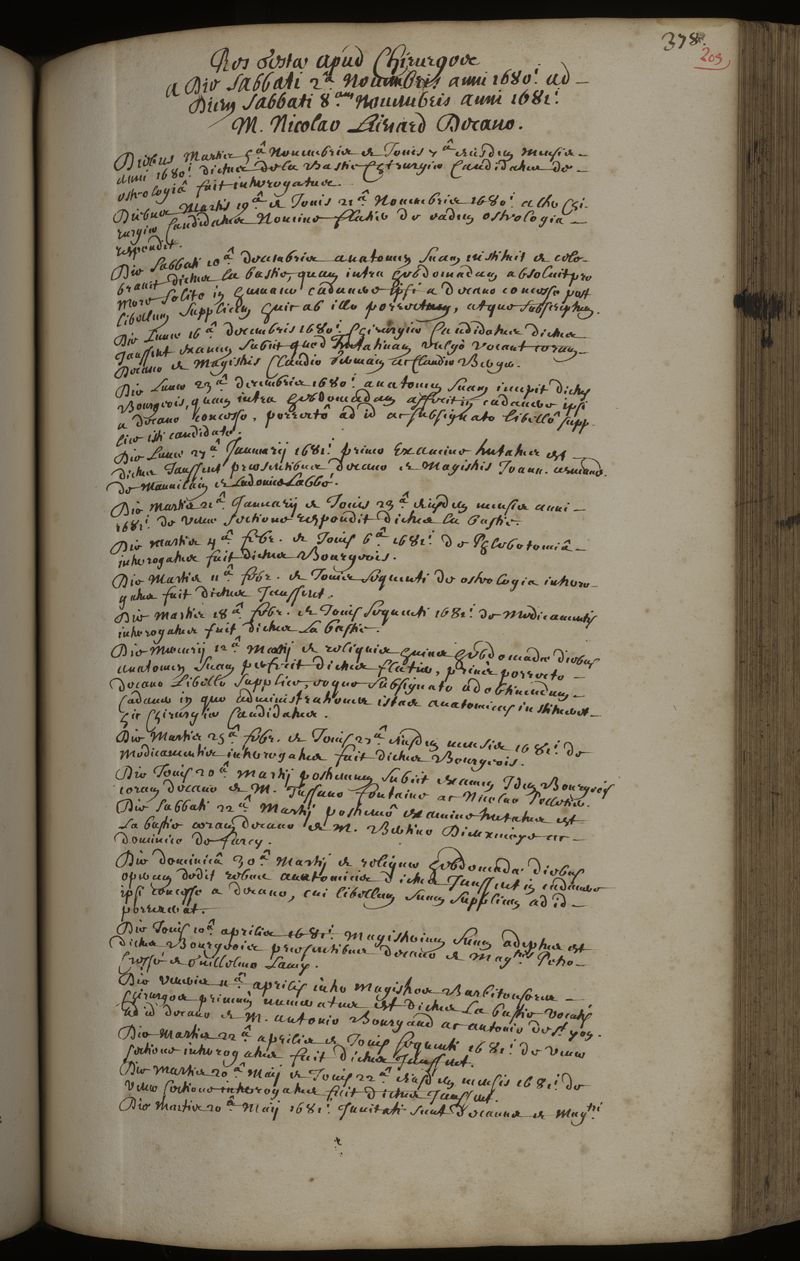 378.
209
Res Gestæ apud Chirurgos
A Die Sabbati 2.ª Novembris anni 1680.i ad
Diem Sabbati 8.am Novembris anni 1681.i
M. Nicolao Lienard Decano.
Diebus Martis 5.ª Novembris & Jovis 7.ª ejusdem mensis
anni 1680.i dictus de la Bastie Chirurgiæ Candidatus de
osteologiâ fuit interrogatus.
Diebus Martis 19.ª & Jovis 21.ª Novembris 1680.i alter Chi-
rurgiæ Candidatus Nomine de eadem osteologia
respondit.
Die Sabbati 10.ª decembris anatomen suam instituit & cele-
bravit dictus la bastie, quam intra hebdomadam absolvit pro
more solito in humano cadavere ipsi a decano concesso post
libellum supplicem huic ab illo porrectum, atque subscriptum.
Die Lunæ 16.ª decembris 1680.i Chirurgiæ Candidatus dictus
Janssent examen subiit quod tentativam vulgò vocant coram
Decano & Magistris Claudio ac Claudio Berger.
Die Lunæ 23.ª decembris 1680.i anatomen suam incepit dictus
Bourgeois, quam intra hebdomadam in cadavere ipsi
a decano concesso, porrecto ad id ac subsignato libello supp-
lice isti candidato.
Die Lunæ 27.ª Januarij 1681.i primo Examine tentatus est
dictus Janssent præsentibus decano & Magistris Joann. armand.
de Mauvillain & Ludovico Labbé.
Die Martis 21.ª Januarij & Jovis 23.ª ejusdem mensis anni
1681.i de venæ sectione respondit dictus la bastie.
Die martis 4.ª febr. & Jovis 6.ª 1681.i de Phlebotomiâ
interrogatus fuit dictus Bourgeois.
Die Martis 11.ª febr. & Jovis sequenti de osteologia interro-
gatus fuit dictus Janssent.
Die martis 18.ª febr. & Jovis sequenti 1681.i de medicamentis
interrogatus fuit dictus la bastie.
Die Mercurij 12.ª Martij & reliquis ejus hebdomadæ diebus
anatomen suam perfecit dictus, prius porrecto
Decano Libello supplice, eoque subsignato ad obtinendum
Cadaver in quo administrationes istas anatomicas institueret
hic Chirurgiæ Candidatus.
Die Martis 25.ª febr. & Jovis 27.ª ejusdem mensis 1681.i de
Medicamentis interrogatus fuit dictus Bourgeois.
Die Jovis 20.ª Martij postremum subiit examen Idem Bourgeois
coram decano & M. Tussano fontaine ac Nicolao
Die Sabbati 22.ª Martij postremo examine tentatus est
La bastie coram decano & M. Bertino Dieuxivoye ac
dominico de farcy.
Die dominicâ 30.ª Martij & reliquis hebdomadæ diebus
operam dedit rebus anatomicis dictus Janssent in cadavere
ipsi concesso a decano, cui libellum suum supplicem ad id
porrexerat.
Die Jovis 10.ª aprilis 1681.i Magisterium suum adeptus est
dictus Bourgeois præsentibus decano & Mag.tris Petro
Cressé & Guillelmo Lamy.
Die Veneris 11.ª aprilis inter Magistros Barbitonsores
Chirurgos primum numeratus est dictus la bastie vocatis
ad id decano & M. antonio Bourgaud ac antonio de St yon.
Die Martis 22.ª aprilis & Jovis sequenti 1681.i de venæ
sectione interrogatus fuit dictus Janssent.
Die martis 20.ª Maij & Jovis 22.ª ejusdem mensis 1681.i de
venæ sectione interrogatus fuit dictus Janssent.
Die Martis 20.ª Maij 1681.i Invitati sunt decanus & Mag.tri